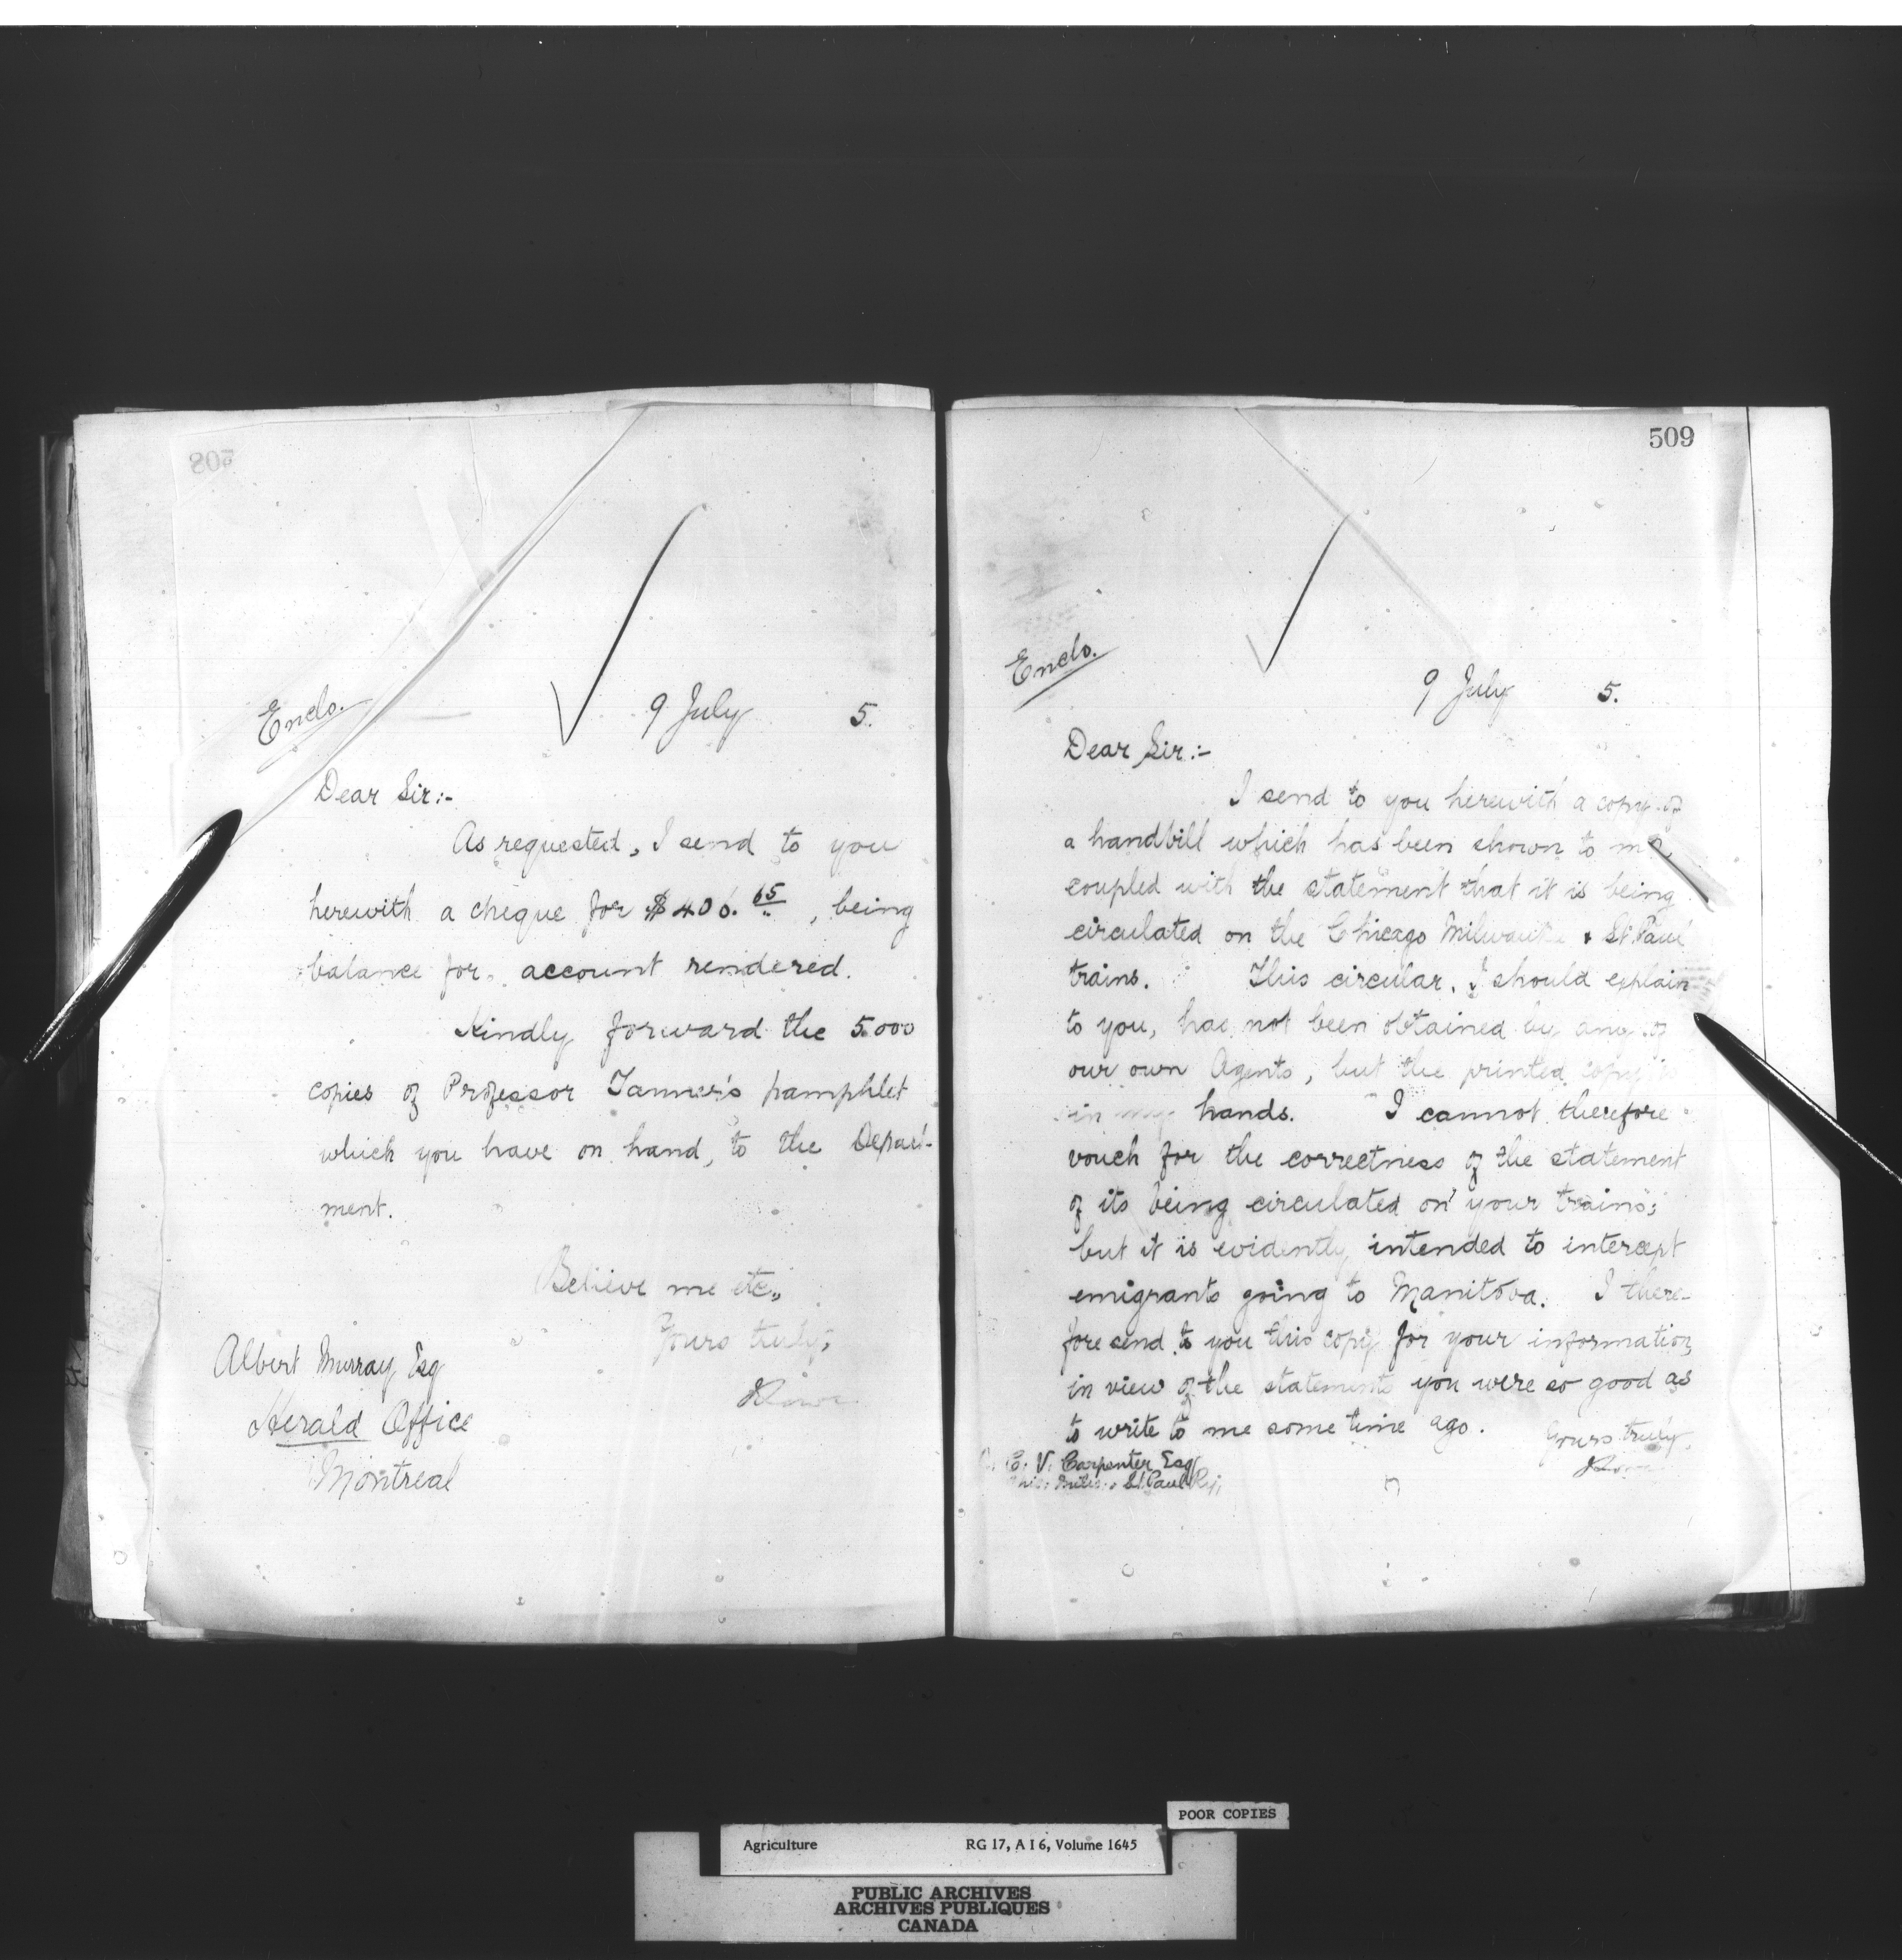 508
Enclo.
9 July 5.
Dear Sir:-
As requested, I send to you
herewith a cheque for $406.65, being
balance for account rendered.
Kindly forward the 5.000
copies of Professor Tanner's pamphlet
which you have on hand, to the Depart-
ment.
Believe me etc.,
Yours truly,
Albert Murray Esq
Herald Office
Montreal
509
Enclo.
9 July 5.
Dear Sir:-
I send to you herewith a copy of
a handbill which has been shown to me,
coupled with the statement that it is being
circulated on the Chicago Milwaukee & St. Paul
trains. This circular, I should explain
to you, has not been obtained by any of
our own Agents, but the printed copy is
in my hands. I cannot therefore
vouch for the correctness of the statement
of its being circulated on your trains;
but it is evidently intended to intercept
emigrants going to Manitoba. I there-
fore send to you this copy for your information,
in view of the statements you were so good as
to write to me some time ago.
Yours truly,
V. Carpenter Esq
St. Paul Ry;
POOR COPIES
Agriculture RG 17, A I 6, Volume 1645
PUBLIC ARCHIVES
ARCHIVES PUBLIQUES
CANADA